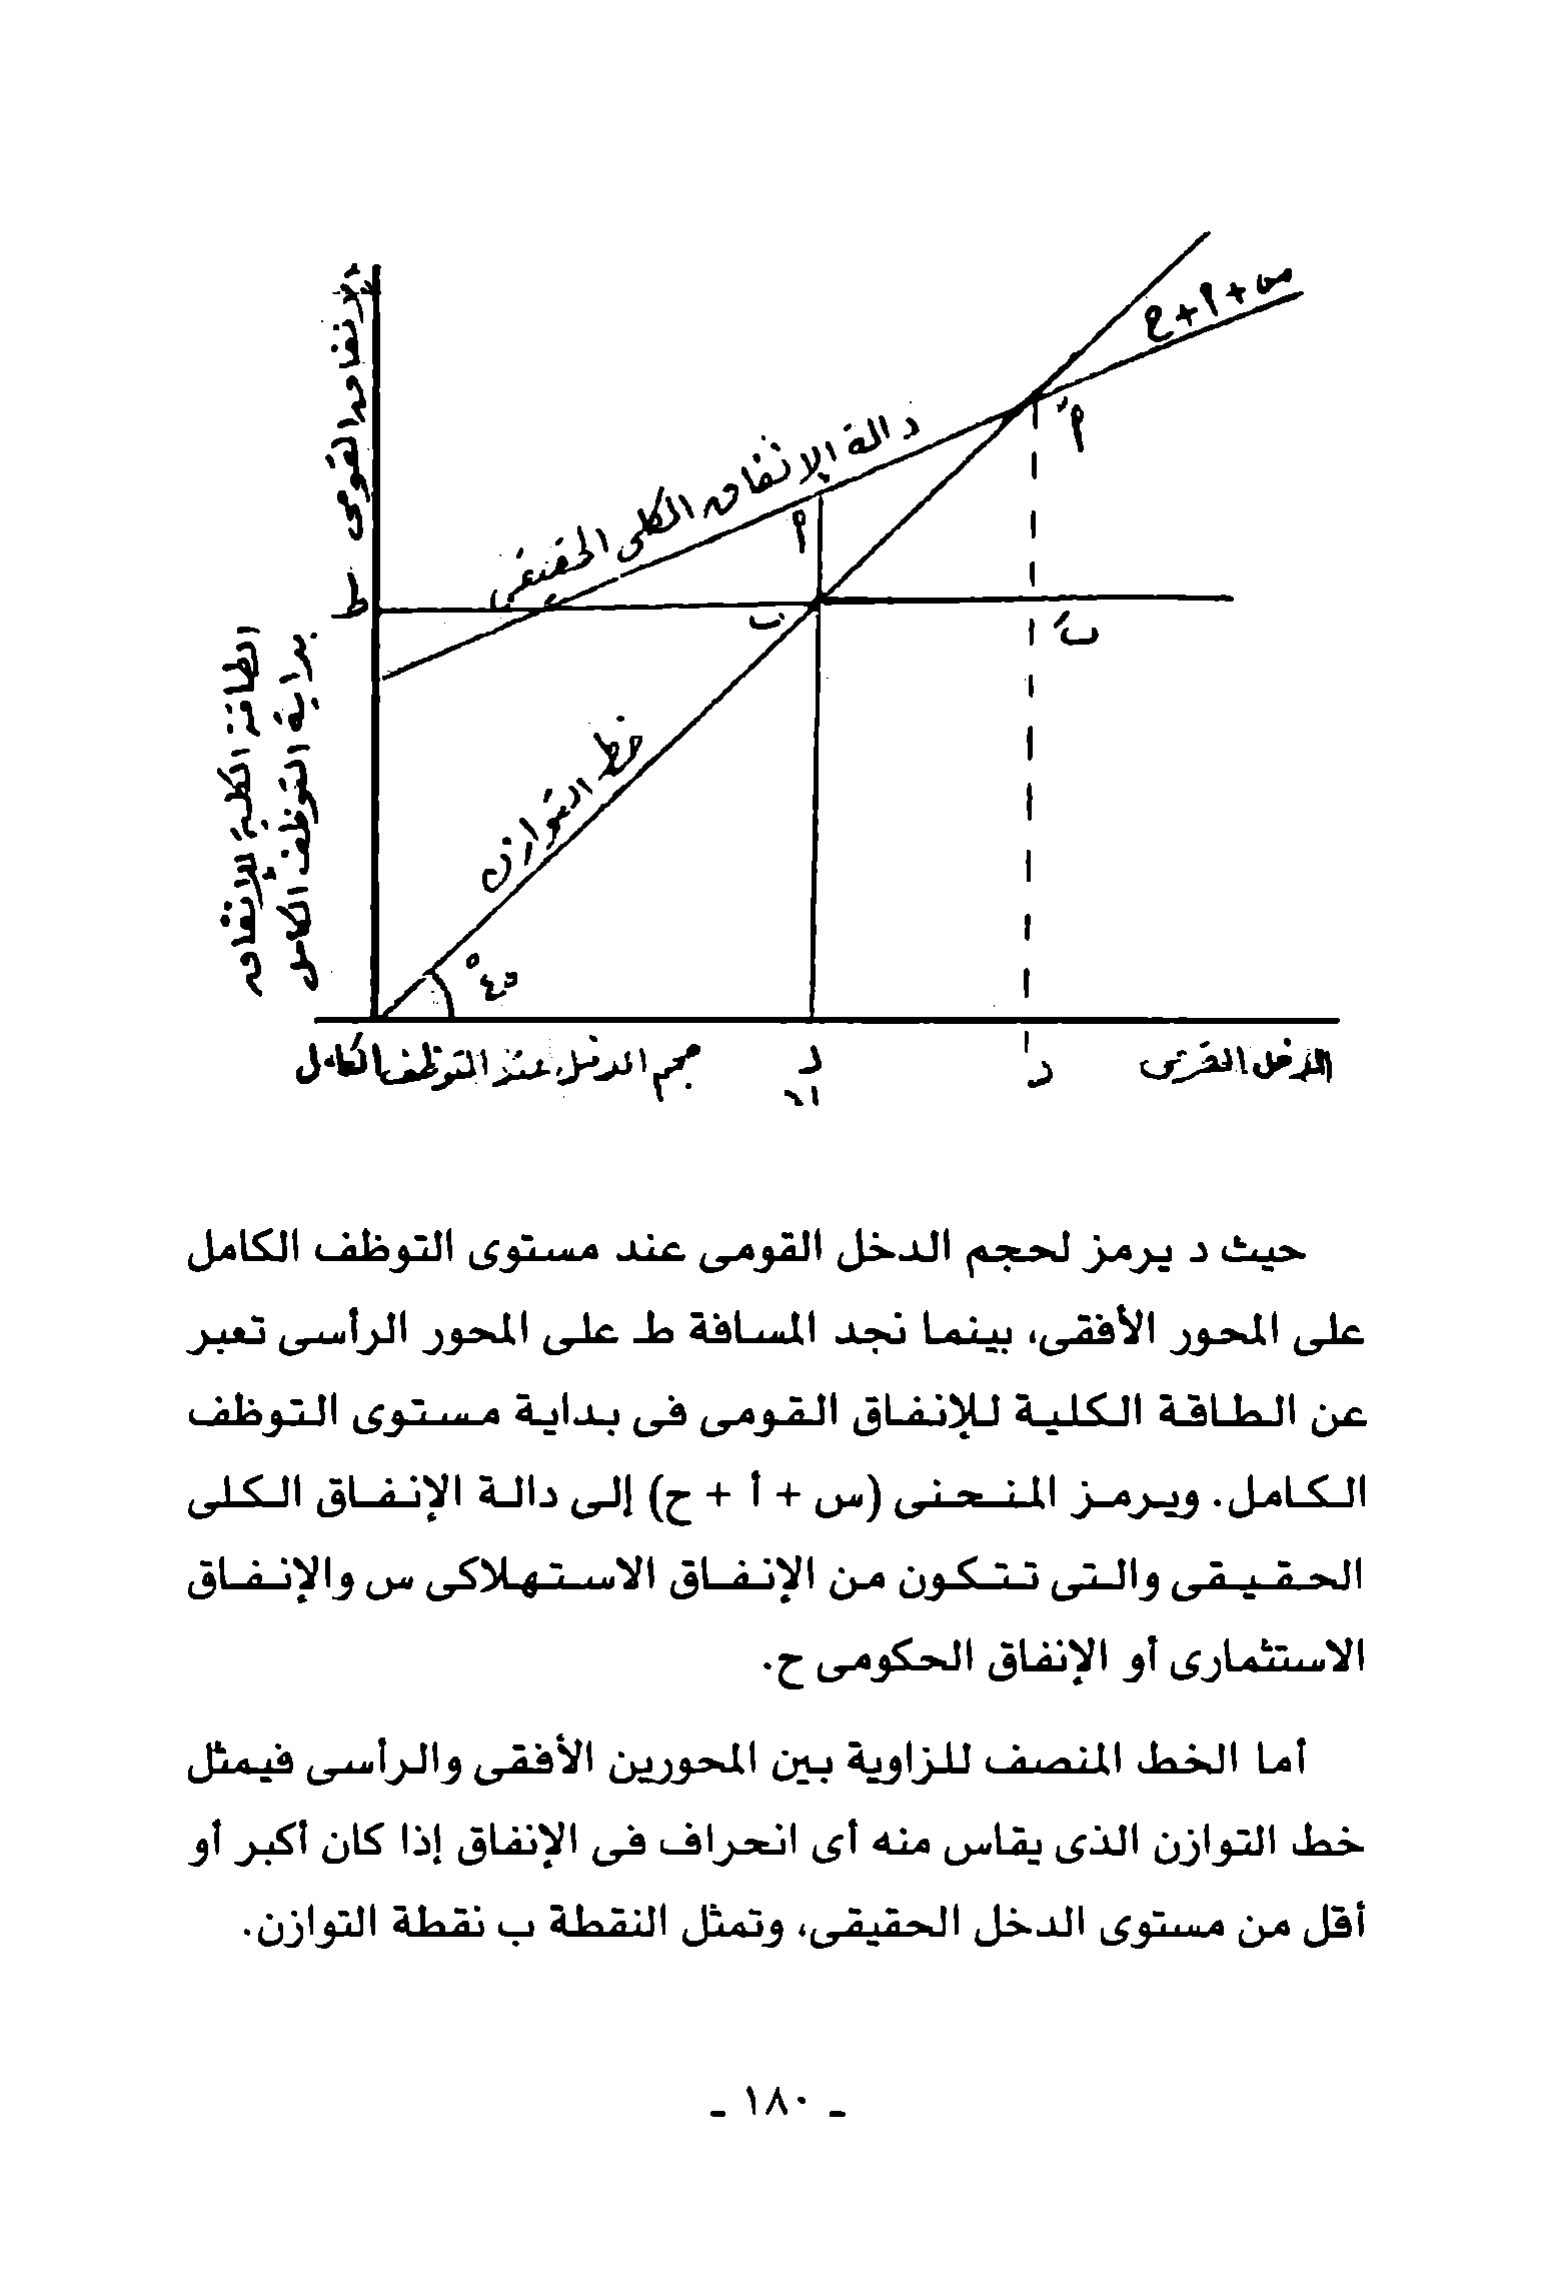 الإنفاق القومى
س + أ + ح
دالة الإنفاق الكلى الحقيقى
أ
أَ
ط
ب
بَ
الطاقة الكلية للإنفاق
بداية التوظف الكامل
خط التوازن
٤٥°
حجم الدخل عند التوظف الكامل
د
دَ
الدخل القومى
حيث د يرمز لحجم الدخل القومى عند مستوى التوظف الكامل
على المحور الأفقى، بينما نجد المسافة ط على المحور الرأسى تعبر
عن الطاقة الكلية للإنفاق القومى فى بداية مستوى التوظف
الكامل. ويرمز المنحنى (س + أ + ح) إلى دالة الإنفاق الكلى
الحقيقى والتى تتكون من الإنفاق الاستهلاكى س والإنفاق
الاستثمارى أو الإنفاق الحكومى ح.
أما الخط المنصف للزاوية بين المحورين الأفقى والرأسى فيمثل
خط التوازن الذى يقاس منه أى انحراف فى الإنفاق إذا كان أكبر أو
أقل من مستوى الدخل الحقيقى، وتمثل النقطة ب نقطة التوازن.
ـ ١٨٠ ـ